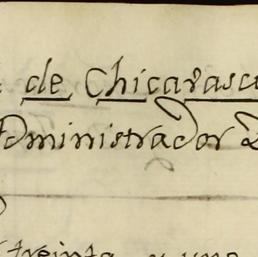 de Chicarasc
administrador
treinta y uno